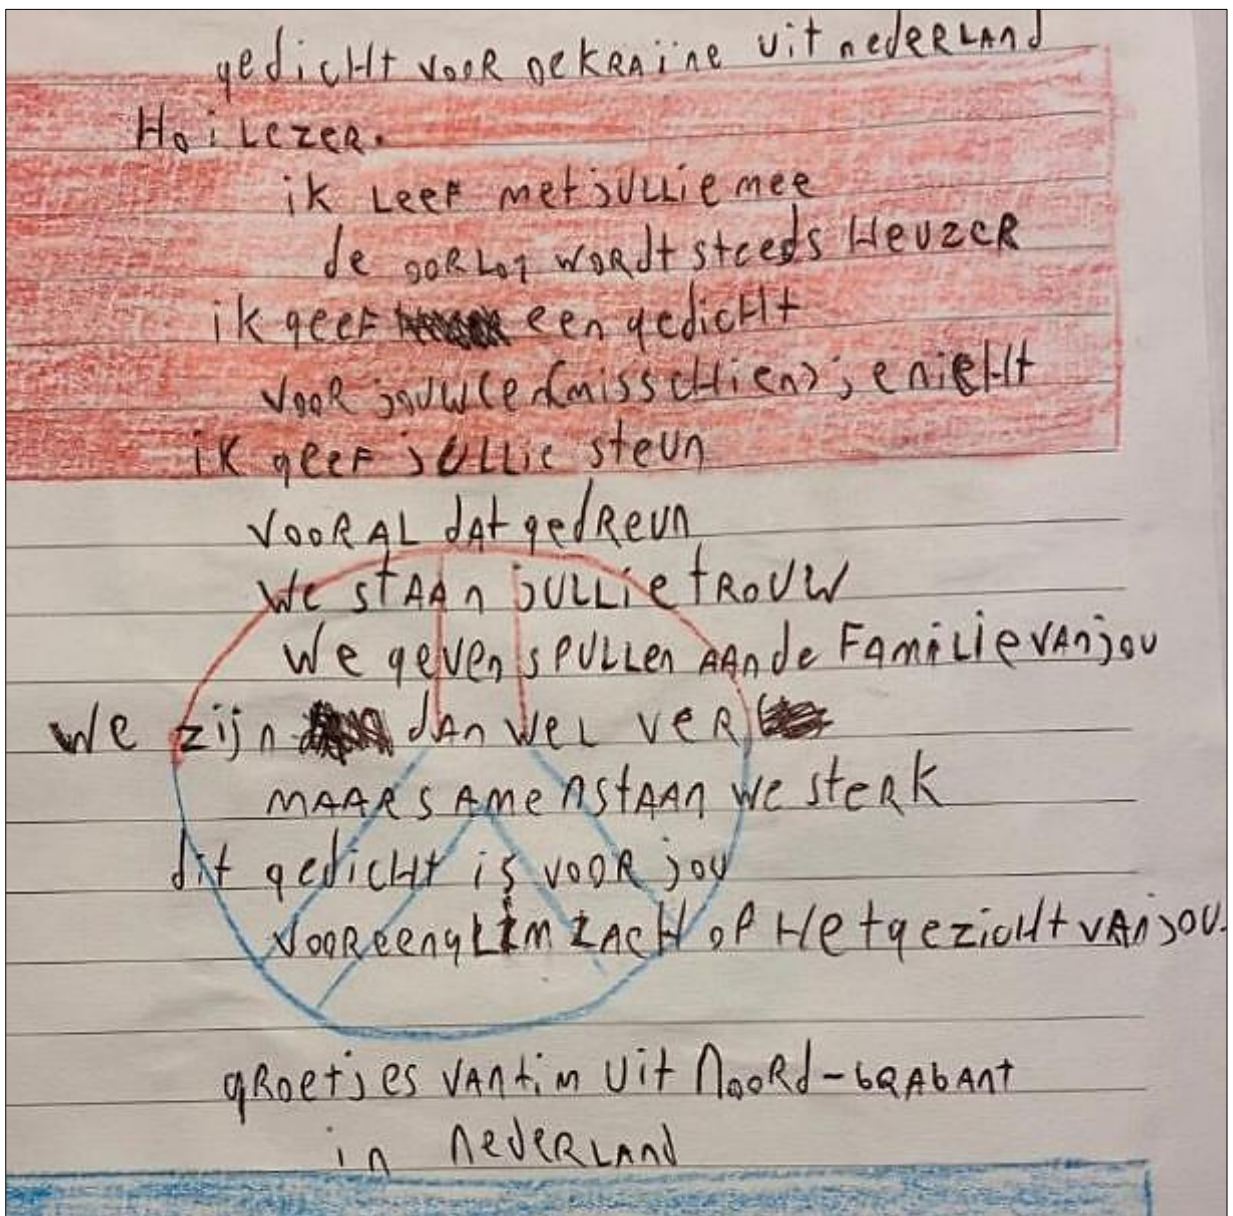 gedicht voor oekraïne uit nederland
Hoi Lezer.
ik Leef met jullie mee
de oorlog wordt steeds Heuzer
ik geef een gedicht
voor jouw (misschien) je nicht
ik geef jullie steun
vooral dat gedreun
We staan jullie trouw
We geven spullen aan de Familie van jou
We zijn dan wel ver
maar samen staan we sterk
dit gedicht is voor jou
voor een glimlach op Het gezicht van jou.
groetjes van tim uit Noord-brabant
in nederland